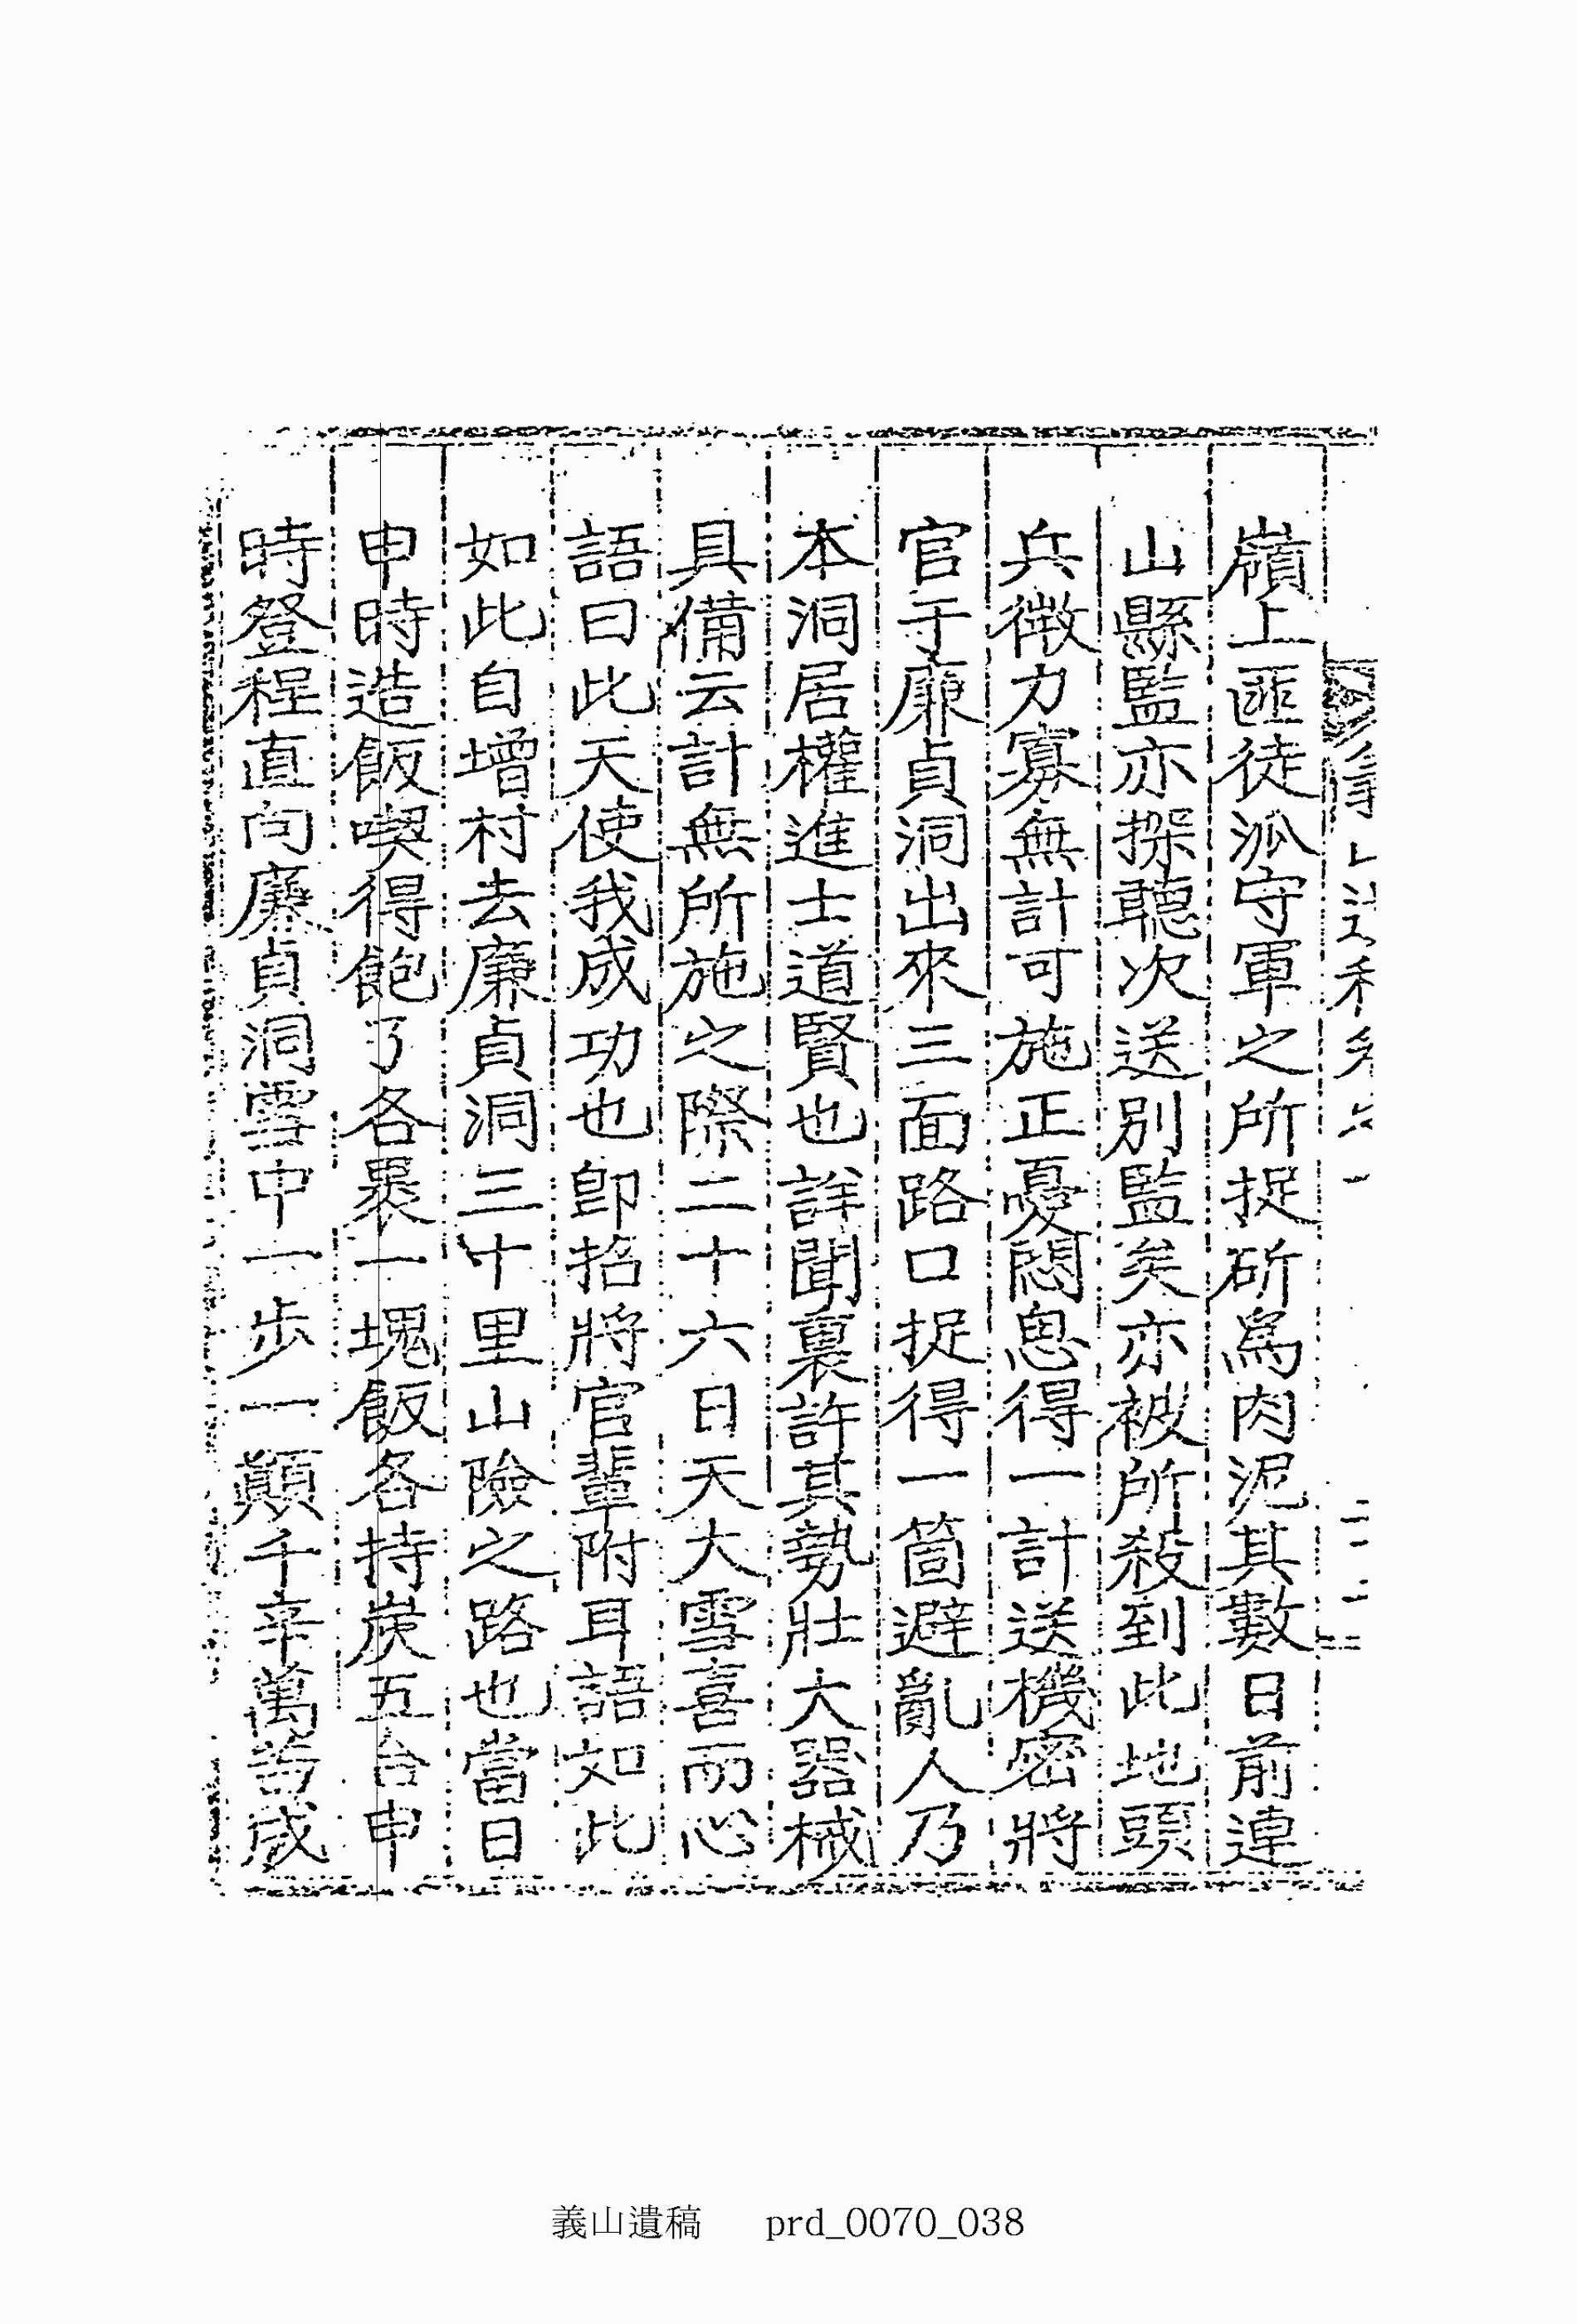 嶺上匪徒派守軍之所捉斫爲肉泥其數日前連
山縣監亦探聽次送別監矣亦被所殺到此地頭
兵微力寡無計可施正憂悶思得一計送機密將
官于廉貞洞出來三面路口捉得一箇避亂人乃
本洞居權進士道賢也詳聞裏許其勢壯大器械
具備云計無所施之際二十六日天大雪喜而心
語曰此天使我成功也卽招將官輩附耳語如此
如此自增村去廉貞洞三十里山險之路也當日
申時造飯喫得飽了各裹一塊飯各持炭五合申
時登程直向廉貞洞雪中一步一顚千辛萬苦戌
義山遺稿 prd_0070_038